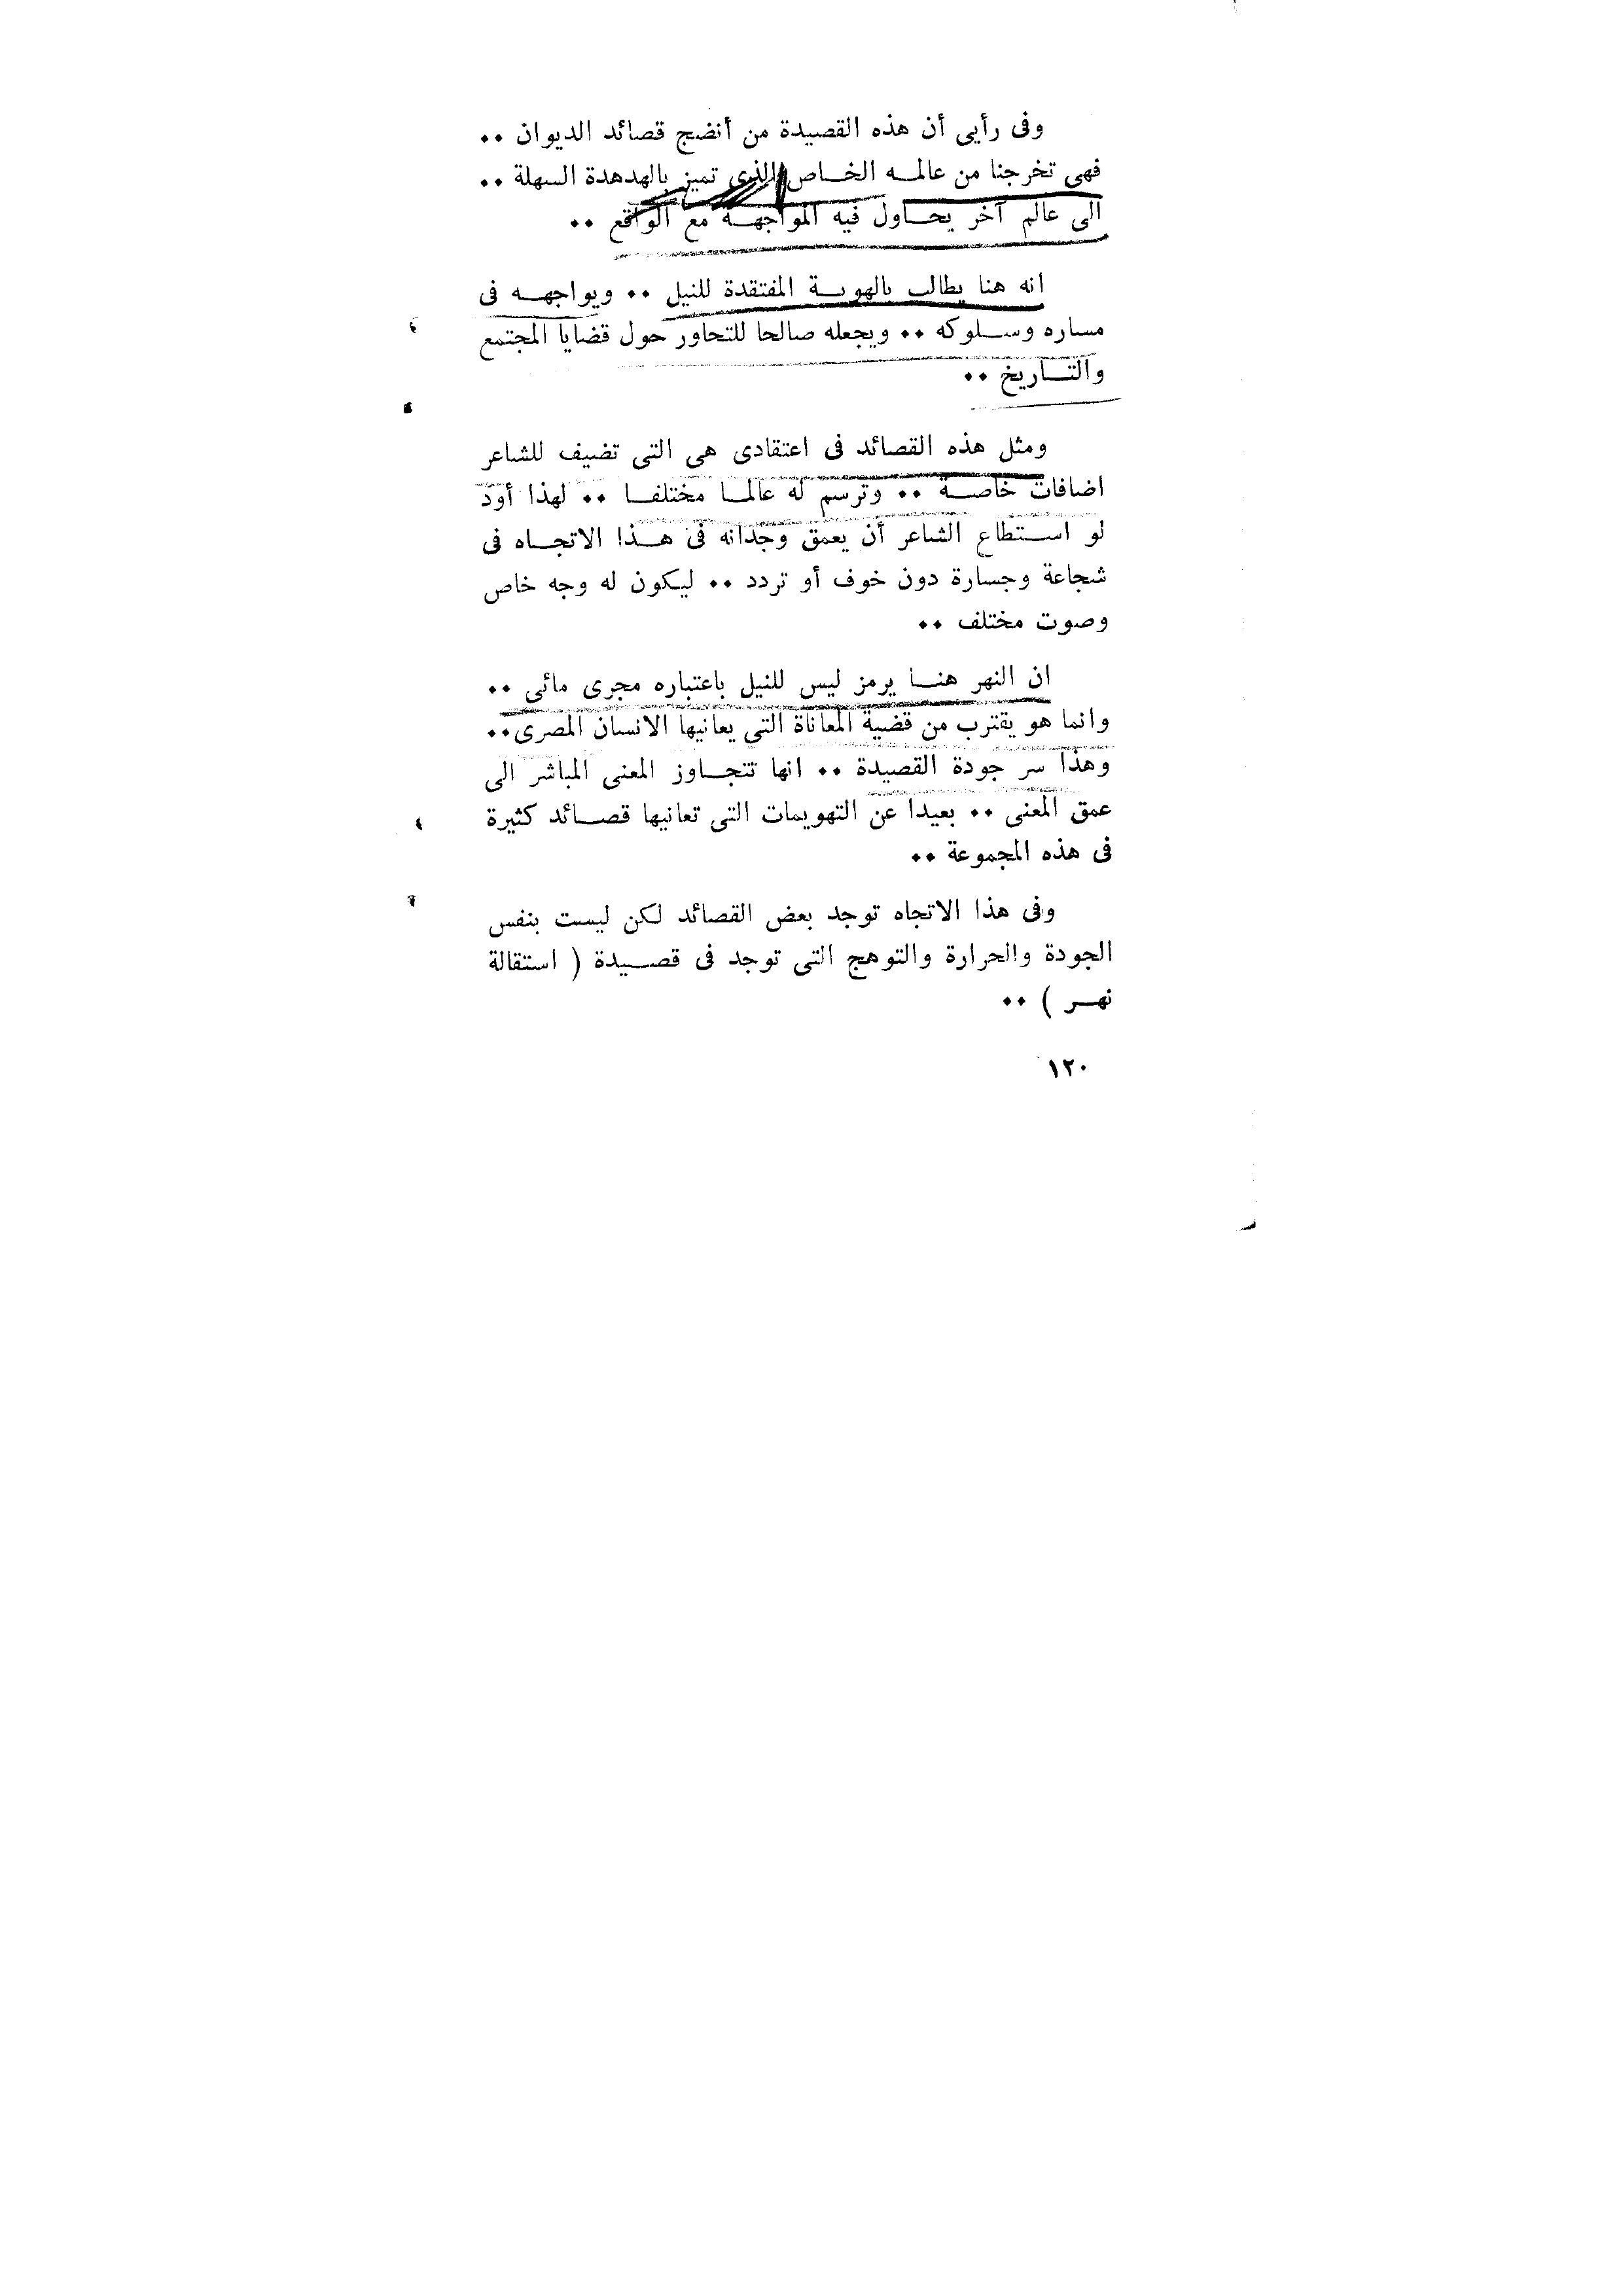 وفى رأيى أن هذه القصيدة من أنضج قصائد الديوان ..
فهى تخرجنا من عالمه الخاص الذى تميز بالهدهدة السهلة ..
الى عالم آخر يحاول فيه المواجهة مع الواقع ..
انه هنا يطالب بالهوية المفتقدة للنيل .. ويواجهه فى
مساره وسلوكه .. ويجعله صالحا للتحاور حول قضايا المجتمع
والتاريخ ..
ومثل هذه القصائد فى اعتقادى هى التى تضيف للشاعر
اضافات خاصة .. وترسم له عالما مختلفا .. لهذا أود
لو استطاع الشاعر أن يعمق وجدانه فى هذا الاتجاه فى
شجاعة وجسارة دون خوف أو تردد .. ليكون له وجه خاص
وصوت مختلف ..
ان النهر هنا يرمز ليس للنيل باعتباره مجرى مائى ..
وانما هو يقترب من قضية المعاناة التى يعانيها الانسان المصرى ..
وهذا سر جودة القصيدة .. انها تتجاوز المعنى المباشر الى
عمق المعنى .. بعيدا عن التهويمات التى تعانيها قصائد كثيرة
فى هذه المجموعة ..
وفى هذا الاتجاه توجد بعض القصائد لكن ليست بنفس
الجودة والحرارة والتوهج التى توجد فى قصيدة ( استقالة
نهر ) ..
١٢٠